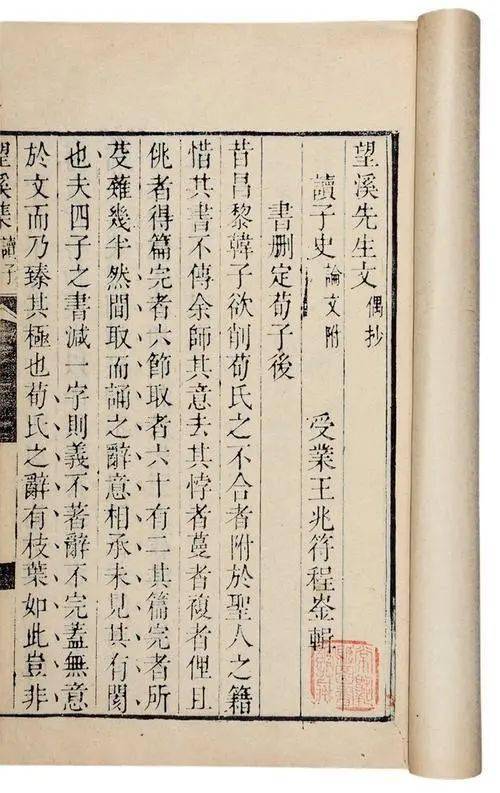 望溪先生文偶抄
讀子史論文附 受業王兆符程崟輯
書刪定荀子後
昔昌黎韓子欲削荀氏之不合者附於聖人之籍
惜其書不傳余師其意去其悖者蔓者複者俚且
佻者得篇完者六節取者六十有二其篇完者所
芟雜幾半然間取而誦之辭意相承未見其有闕
也夫四子之書減一字則義不著辭不完蓋無意
於文而乃臻其極也荀氏之辭有枝葉如此豈非
望溪集 讀子